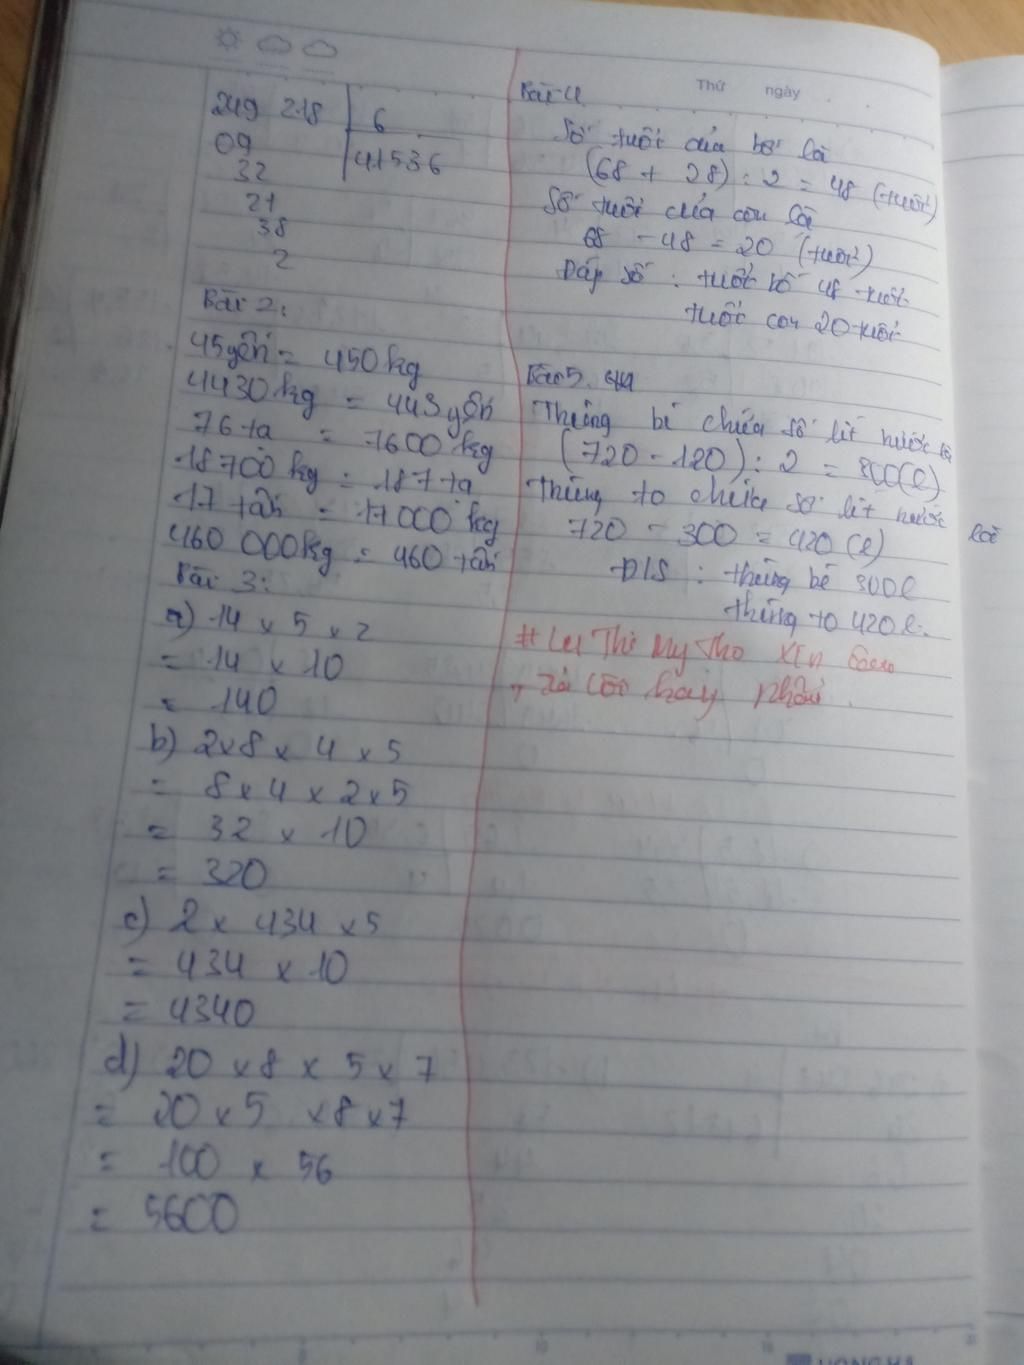 249 218 | 6
09 | 41536
32
21
38
2
Bài 2:
45yến = 450kg
4430kg = 443yến
76 tạ = 7600kg
18700kg = 187 tạ
17 tấn = 17000kg
460 000kg = 460 tấn
Bài 3:
a) 14 x 5 x 2
= 14 x 10
= 140
b) 2x8 x 4 x 5
= 8 x 4 x 2 x 5
= 32 x 10
= 320
c) 2 x 434 x 5
= 434 x 10
= 4340
d) 20 x 8 x 5 x 7
= 20 x 5 x 8 x 7
= 100 x 56
= 5600
Thứ ngày
Bài 4
Số tuổi của bố là
(68 + 28) : 2 = 48 (tuổi)
Số tuổi của con là
68 - 48 = 20 (tuổi)
Đáp số : tuổi bố 48 tuổi
tuổi con 20 tuổi
Bài 5.
Thùng bé chứa số lít nước là
(720 - 120) : 2 = 300(l)
Thùng to chứa số lít nước là
720 - 300 = 420 (l)
Đ/S : thùng bé 300l
thùng to 420l.
# Thị My Tho
hay nhầm